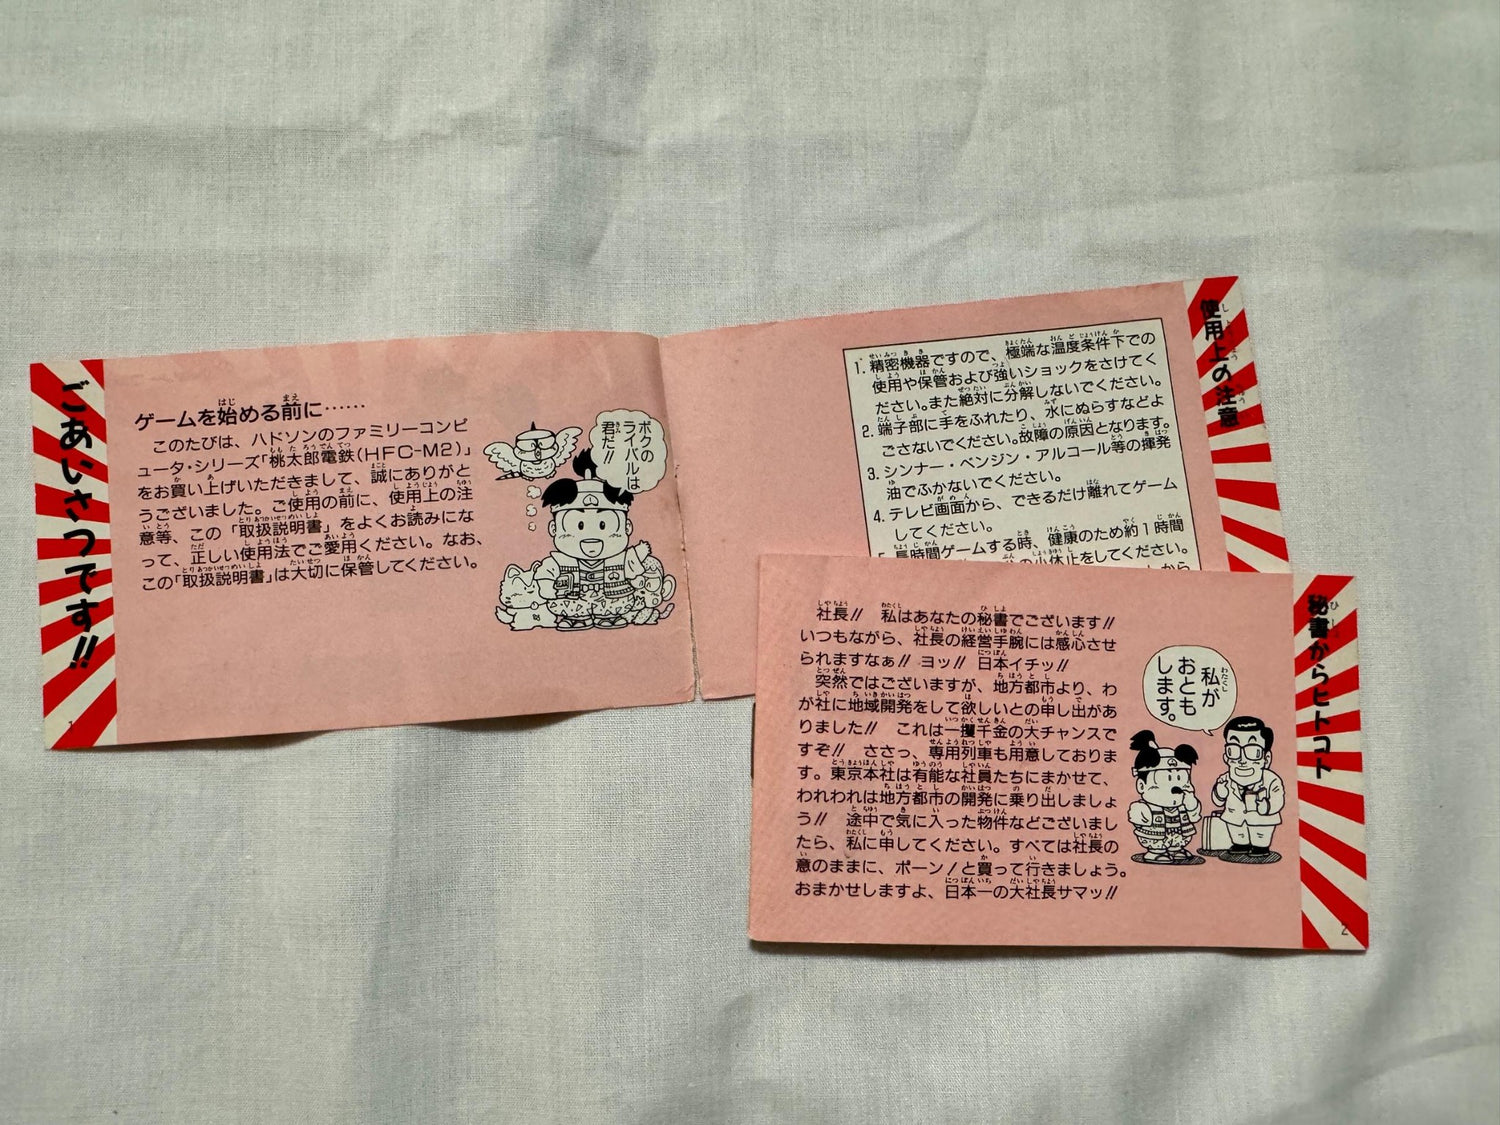 ごあいさつです!!
ゲームを始める前に……
このたびは、ハドソンのファミリーコンピ
ュータ・シリーズ「桃太郎電鉄(HFC-M2)」
をお買い上げいただきまして、誠にありがと
うございました。ご使用の前に、使用上の注
意等、この「取扱説明書」をよくお読みにな
って、正しい使用法でご愛用ください。なお、
この「取扱説明書」は大切に保管してください。
ボクの
ライバルは
君だ!!
1
使用上の注意
1. 精密機器ですので、極端な温度条件下での
使用や保管および強いショックをさけてく
ださい。また絶対に分解しないでください。
2. 端子部に手をふれたり、水にぬらすなどよ
ごさないでください。故障の原因となります。
3. シンナー・ベンジン・アルコール等の揮発
油でふかないでください。
4. テレビ画面から、できるだけ離れてゲーム
してください。
5. 長時間ゲームする時、健康のため約1時間
の小休止をしてください。
から
秘書からヒトコト
社長!! 私はあなたの秘書でございます!!
いつもながら、社長の経営手腕には感心させ
られますなぁ!! ヨッ!! 日本イチッ!!
突然ではございますが、地方都市より、わ
が社に地域開発をして欲しいとの申し出があ
りました!! これは一攫千金の大チャンスで
すぞ!! ささっ、専用列車も用意しておりま
す。東京本社は有能な社員たちにまかせて、
われわれは地方都市の開発に乗り出しましょ
う!! 途中で気に入った物件などございまし
たら、私に申してください。すべては社長の
意のままに、ポーン!と買って行きましょう。
おまかせしますよ、日本一の大社長サマッ!!
私が
おとも
します。
2